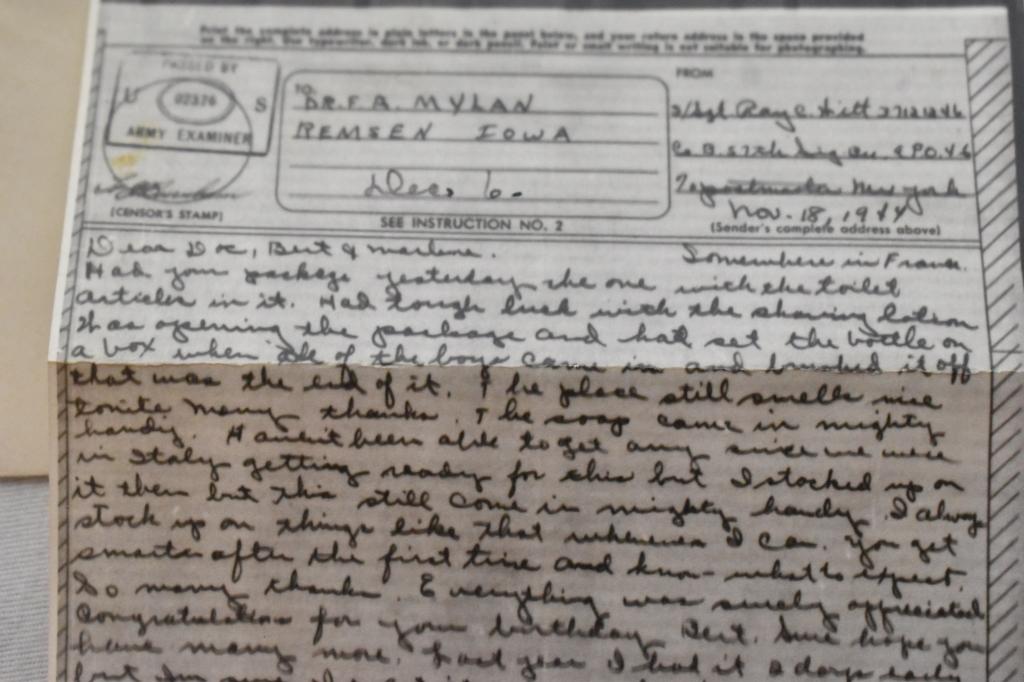 Print the complete address in plain letters in the panel below, and your return address in the space provided
on the right. Use typewriter, dark ink, or dark pencil. Faint or small writing is not suitable for photographing.
PASSED BY
U S
02326
ARMY EXAMINER
(CENSOR'S STAMP)
TO
DR. F. A. MYLAN
REMSEN IOWA
Dec. 6.
SEE INSTRUCTION NO. 2
FROM
S/Sgt Ray C.
Co B. 57th Sig Bn. APO. 46
Postmaster New York
Nov. 18, 1944
(Sender's complete address above)
Dear Doc, Bert & Marlene. Somewhere in France.
Had your package yesterday the one with the toilet
articles in it. Had tough luck with the shaving lotion
Was opening the package and had set the bottle on
a box when one of the boys came in and brushed it off
that was the end of it. The place still smells nice
tonite Many thanks. The soap came in mighty
handy. Haven't been able to get any since we were
in Italy getting ready for this but I stocked up on
it then but this still come in mighty handy. I always
stock up on things like that whenever I can. You get
smarter after the first time and know what to expect.
So many thanks. Everything was surely appreciated
Congratulations for your birthday Bert. Sure hope you
have many more. Last year I had it a days early
but I'm sure